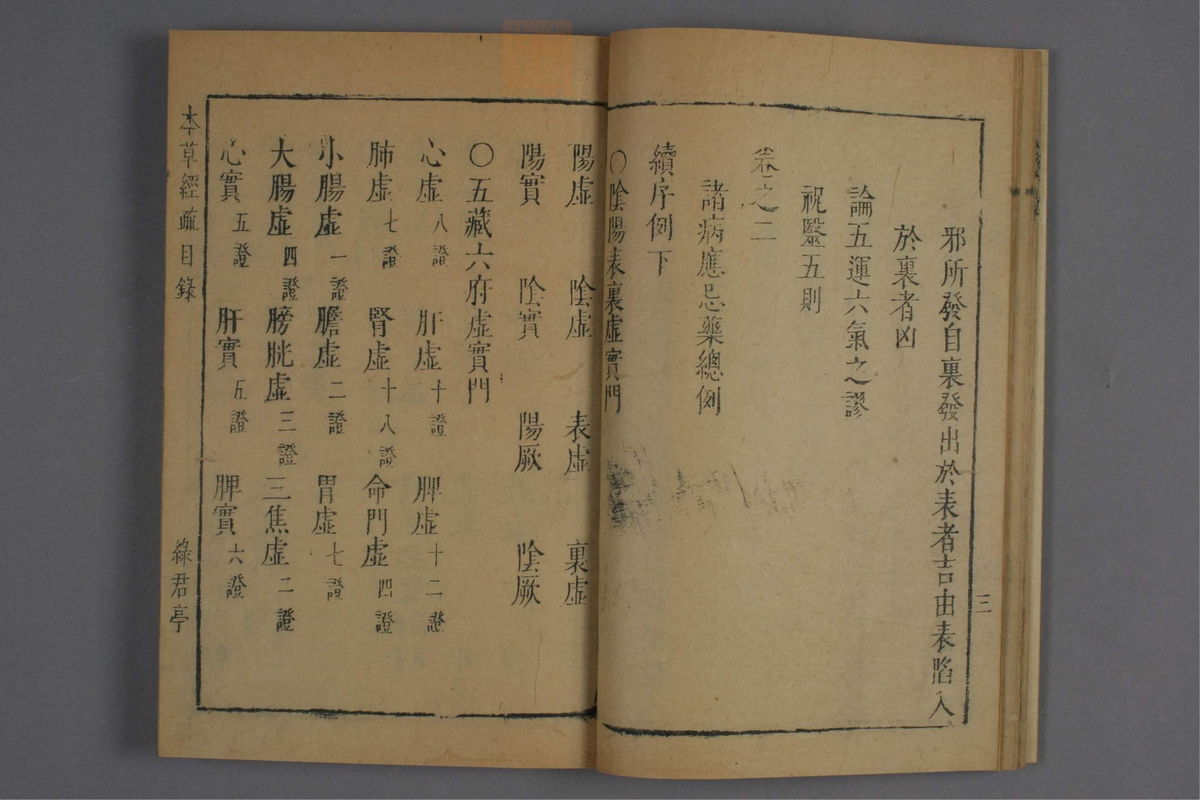 邪所發自裏發出於表者吉由表陷入
於裏者凶
論五運六氣之謬
祝醫五則
卷之二
諸病應忌藥總例
續序例下
〇陰陽表裏虛實門
三
陽虛 陰虛 表虛 裏虛
陽實 陰實 陽厥 陰厥
〇五藏六府虛實門
心虛八證 肝虛十證 脾虛十二證
肺虛七證 腎虛十八證 命門虛四證
小腸虛一證 膽虛二證 胃虛七證
大腸虛四證 膀胱虛三證 三焦虛二證
心實五證 肝實五證 脾實六證
本草經疏目錄 綠君亭